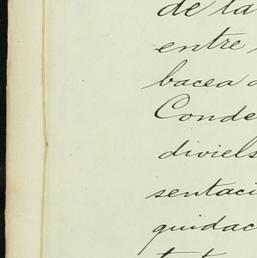 de la
entre
bacea
Conde
diviels
sentaci
quidac